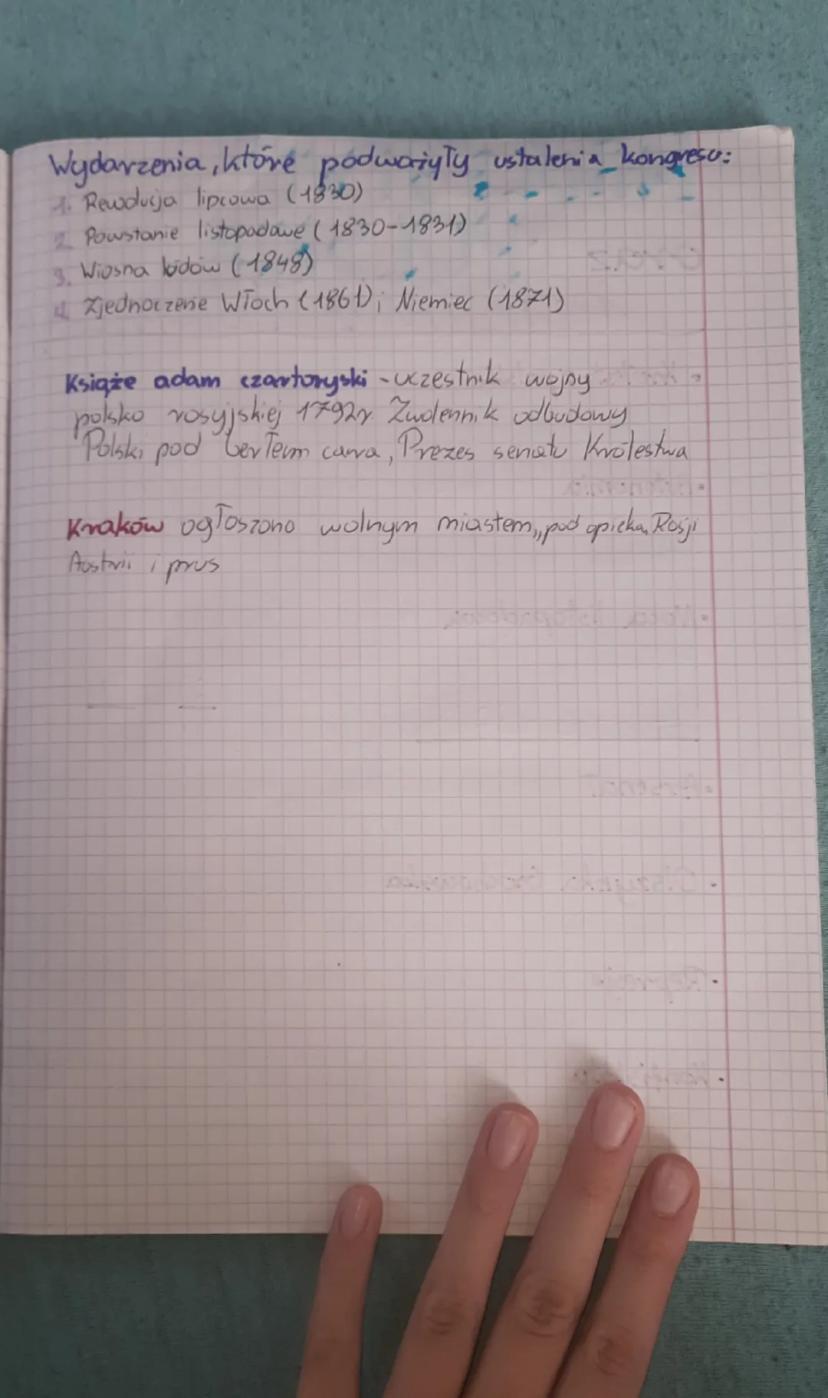 Wydarzenia, które podważyły ustalenia kongresu:
1. Rewolucja lipcowa (1830)
2. Powstanie listopadowe (1830-1831)
3. Wiosna ludów (1848)
4. Zjednoczenie Włoch (1861), Niemiec (1871)
Książe adam czartoryski - uczestnik wojny
polsko rosyjskiej 1792r. Zwolennik odbudowy
Polski pod berłem cara, Prezes senatu Królestwa
Kraków ogłoszono wolnym miastem „pod opieką Rosji
Austrii i prus